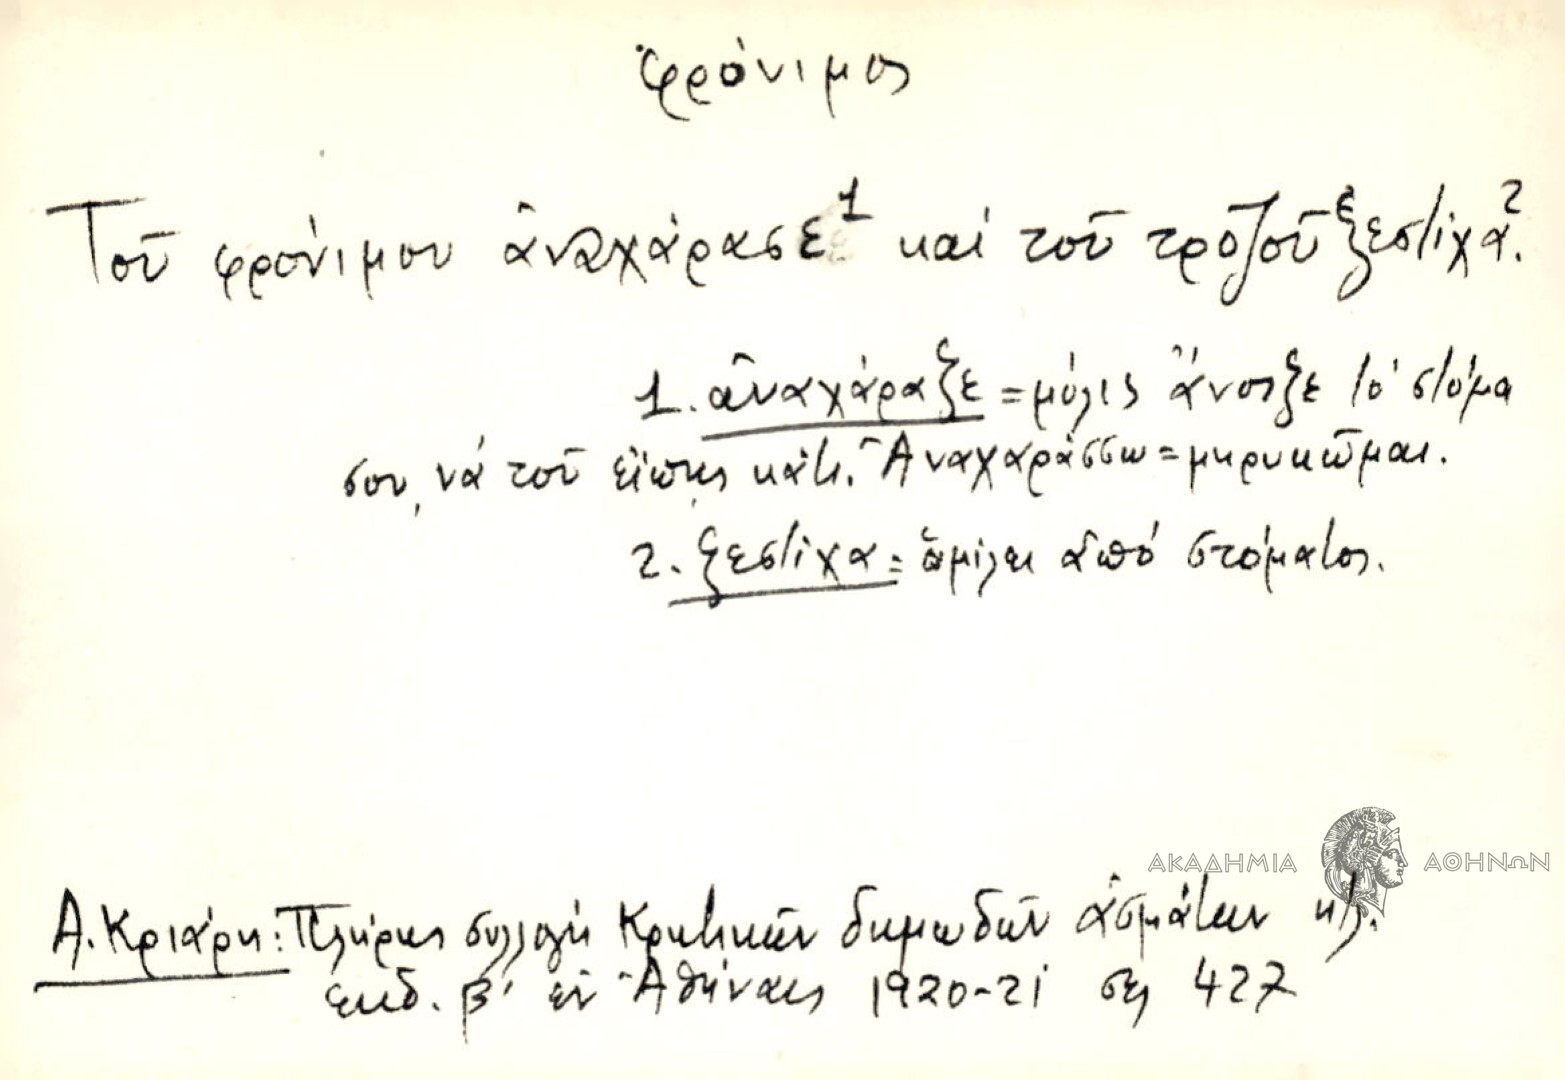 φρόνιμος
Τοῦ φρόνιμου ἀναχάρασε¹ καί τοῦ τροζοῦ ξεστίχα².
1. ἀναχάραξε = μόλις ἄνοιξε τό στόμα
σου, νά τοῦ εἴπῃς κάτι. Ἀναχαράσσω = μηρυκῶμαι.
2. ξεστίχα = ὁμίλει ἀπό στόματος.
ΑΚΑΔΗΜΙΑ ΑΘΗΝΩΝ
Α. Κριάρη: Πλήρης συλλογή Κρητικῶν δημωδῶν ἀσμάτων κτλ.
ἐκδ. β' ἐν Ἀθήναις 1920-21 σελ 427